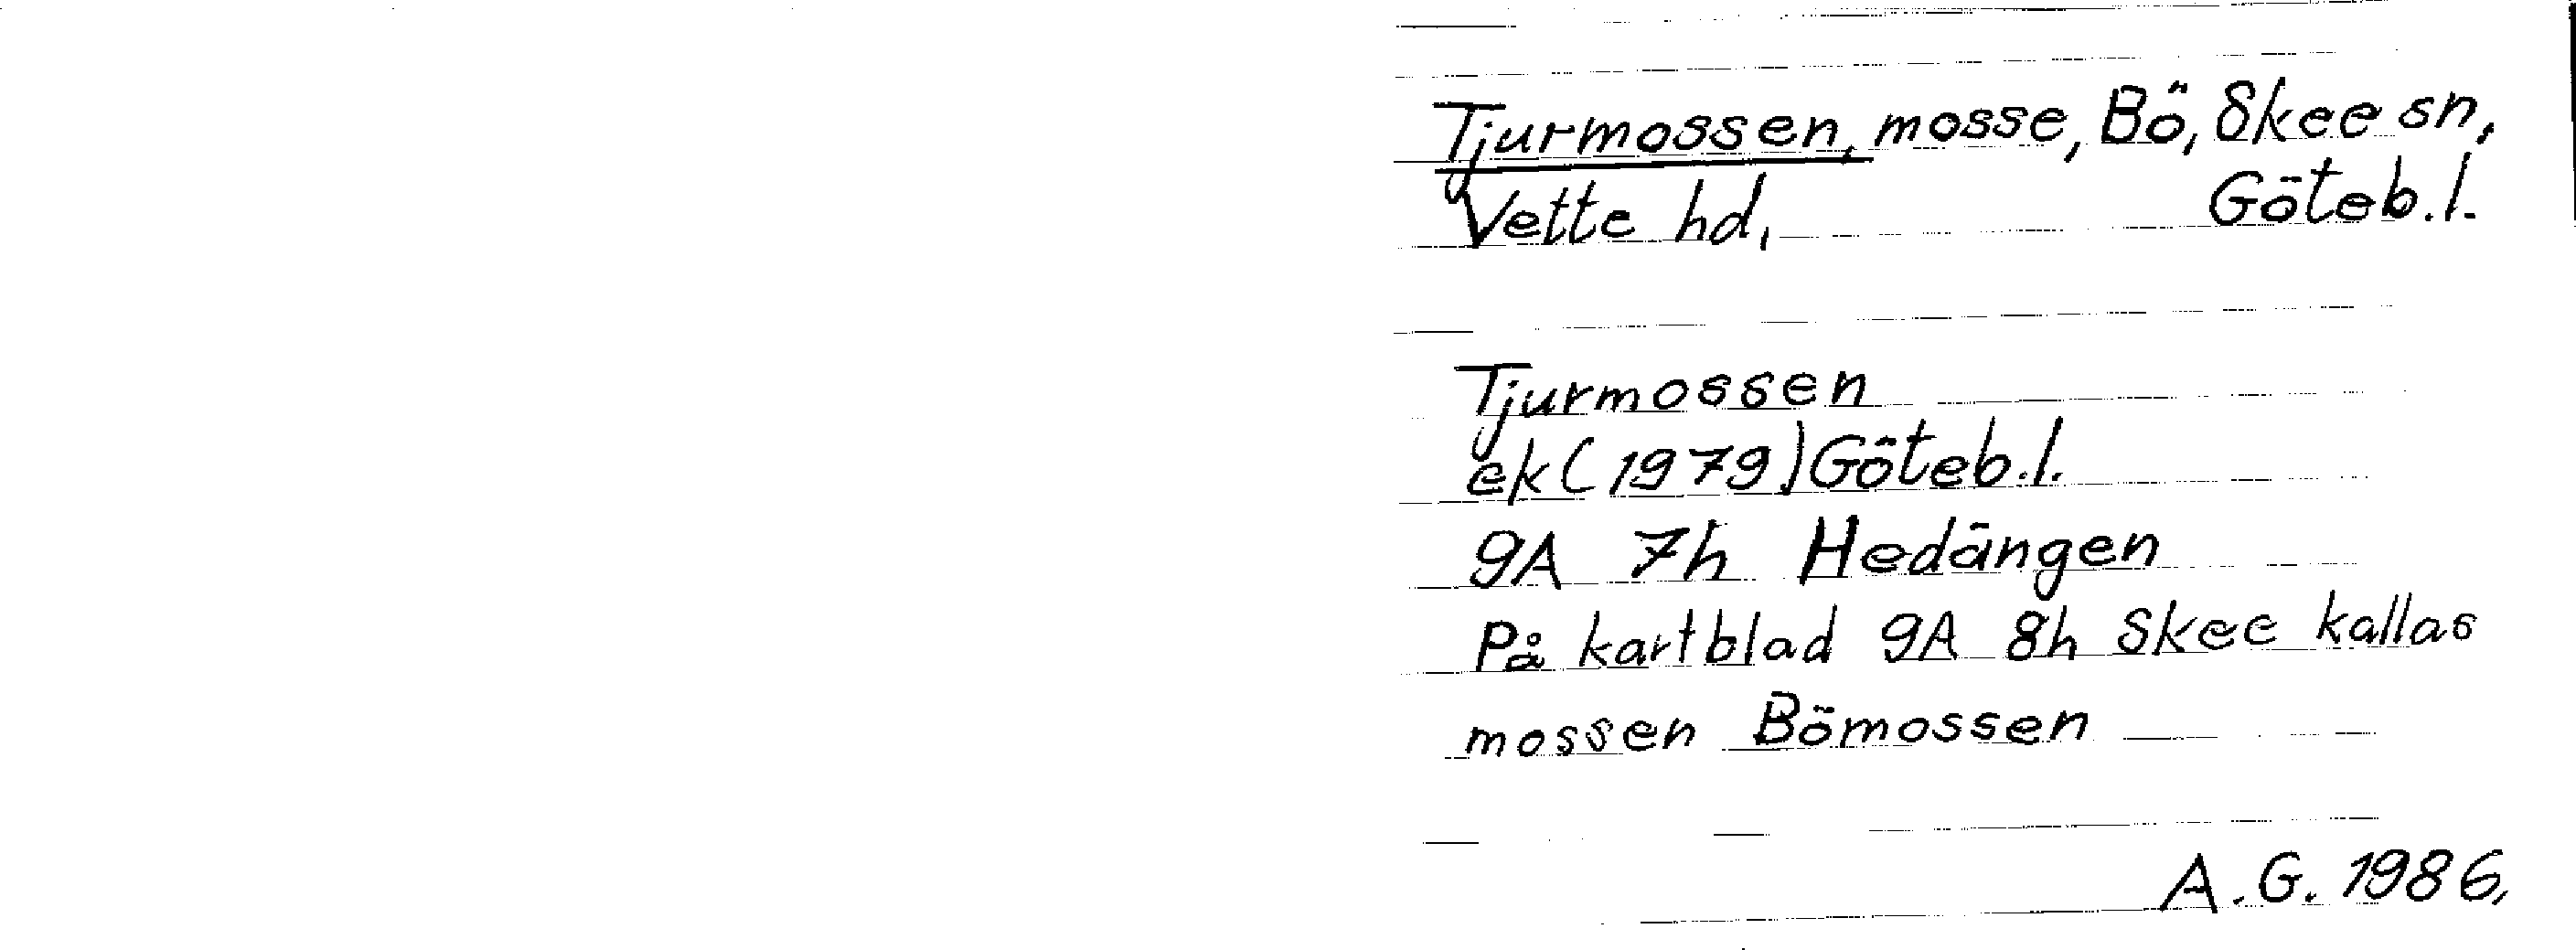 Tjurmossen, mosse, Bö, Skee sn,
Vette hd, Göteb.l.
Tjurmossen
ek (1979) Göteb.l.
9A 7h Hedängen
På kartblad 9A 8h Skee kallas
mossen Bömossen
A.G. 1986.